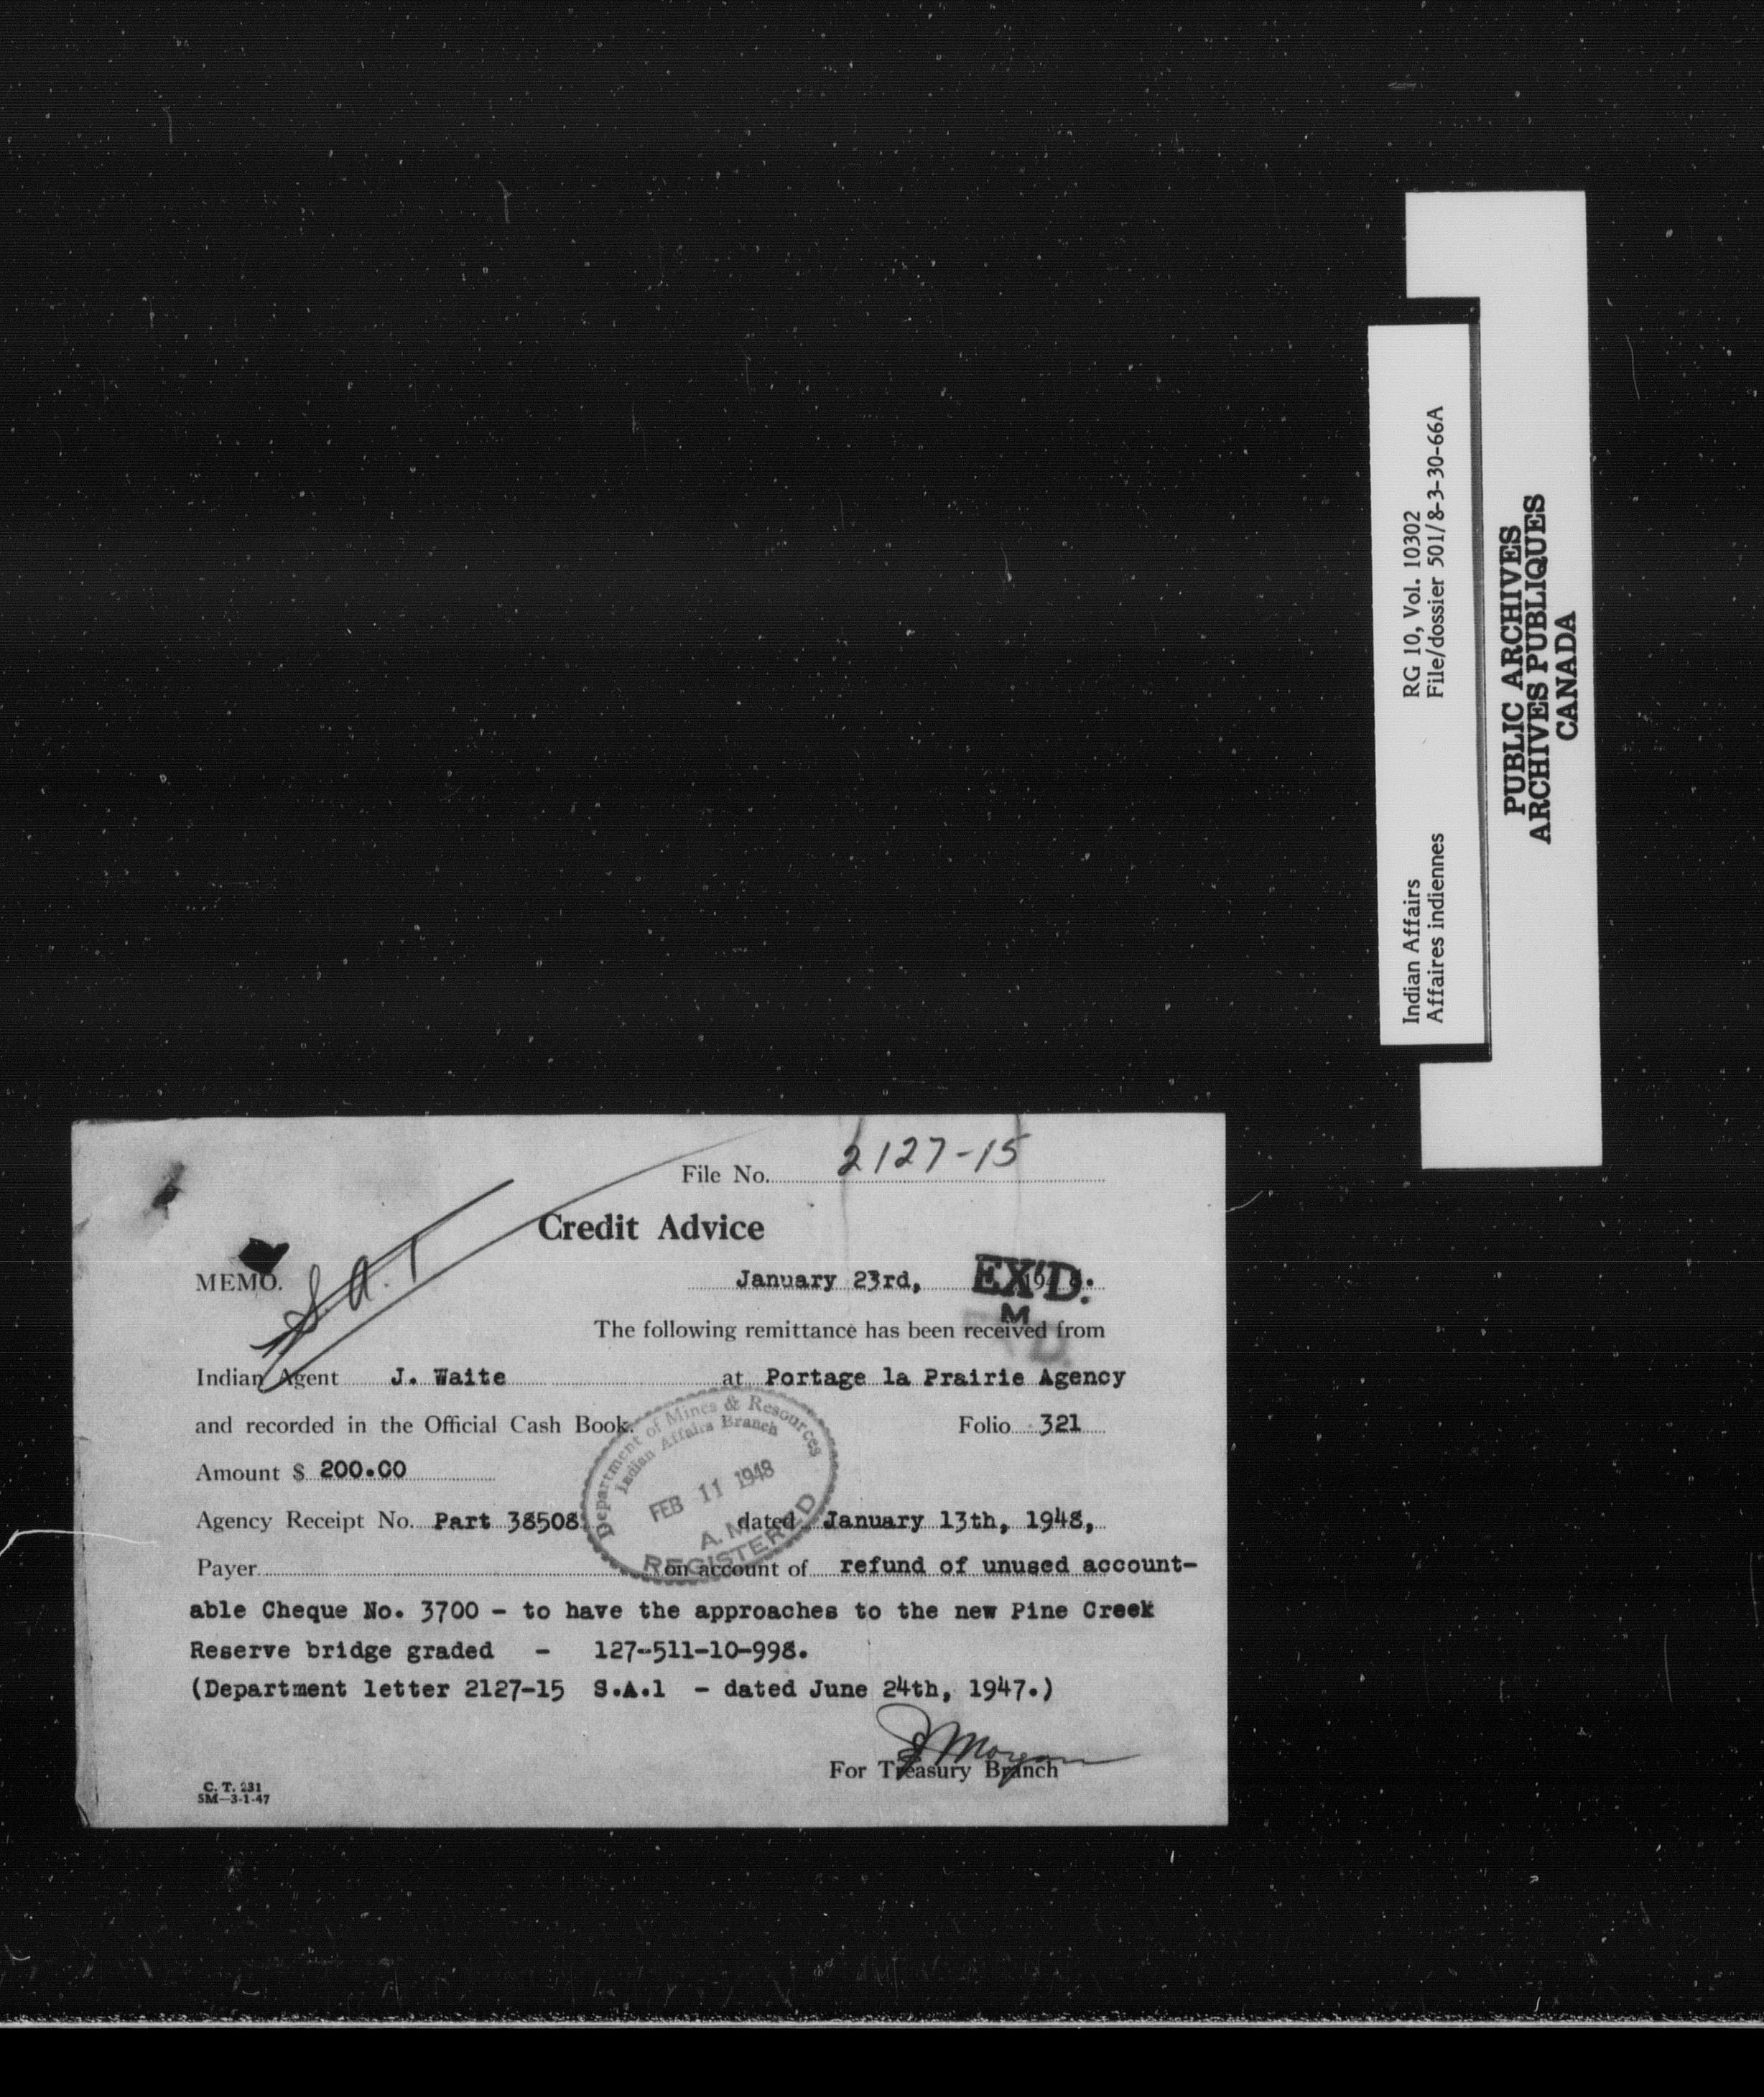 File No. 2127-15
Credit Advice
MEMO.
S.A.1
January 23rd, 194
EX'D.
M
The following remittance has been received from
Indian Agent J. Waite at Portage la Prairie Agency
and recorded in the Official Cash Book. Folio 321
Amount $ 200.00
Agency Receipt No. Part 38508 dated January 13th, 1948,
Payer on account of refund of unused account-
able Cheque No. 3700 - to have the approaches to the new Pine Creek
Reserve bridge graded - 127-511-10-998.
(Department letter 2127-15 S.A.1 - dated June 24th, 1947.)
Morgan
For Treasury Branch
C. T. 231
5M-3-1-47
Department of Mines & Resources
Indian Affairs Branch
FEB 11 1948
A.M.
REGISTERED
Indian Affairs RG 10, Vol. 10302
Affaires indiennes File/dossier 501/8-3-30-66A
PUBLIC ARCHIVES
ARCHIVES PUBLIQUES
CANADA